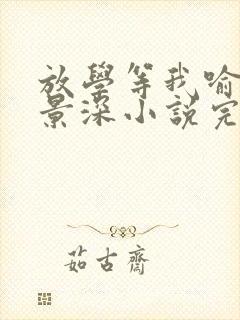 放學等我喻
景深小説完
茹古齋